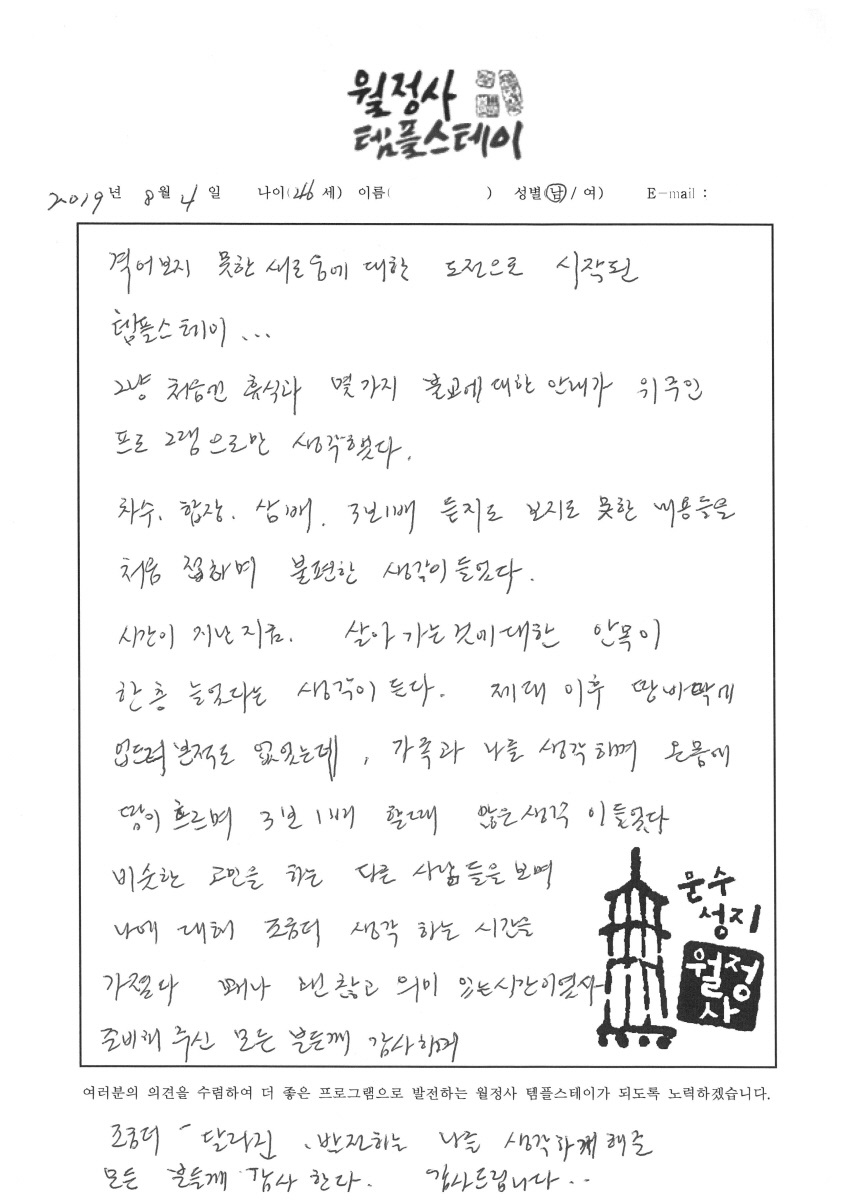 월정사
템플스테이
2019년 8월 4일 나이(46세) 이름( ) 성별(남/여) E-mail :
격어보지 못한 새로움에 대한 도전으로 시작된
템플스테이 ...
그냥 처음엔 휴식과 몇가지 불교에 대한 안내가 위주인
프로그램으로만 생각했다.
차수. 합장. 삼배. 3보1배 듣지도 보지도 못한 내용들을
처음 접하며 불편한 생각이 들었다.
시간이 지난지금. 살아가는것에 대한 안목이
한층 늘었다는 생각이 든다. 제대 이후 땅바닥에
업드려본적도 없었는데, 가족과 나를 생각하며 온몸에
땀이 흐르며 3보1배 할때 많은생각이들었다
비슷한 고민을 하는 다른 사람들을보며
나에 대해 조금더 생각 하는 시간을
가졌다 꽤나 괜찮고 의미 있는시간이였다
준비해 주신 모든 분들께 감사하며
문수
성지
월정
사
여러분의 의견을 수렴하여 더 좋은 프로그램으로 발전하는 월정사 템플스테이가 되도록 노력하겠습니다.
조금더 달라진, 반전하는 나를 생각하게해준
모든 분들께 감사 한다. 감사드립니다..